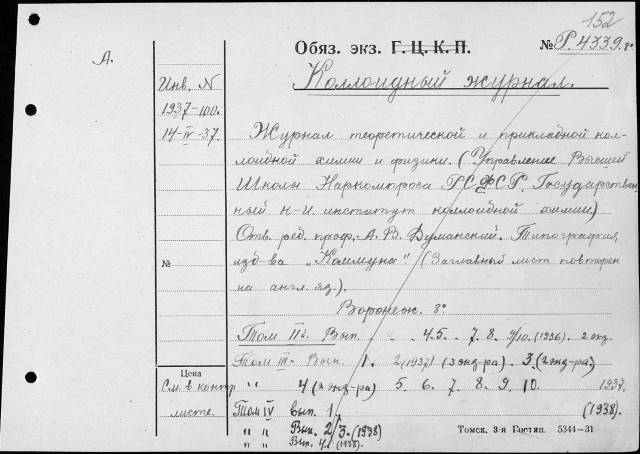 152
А.
Обяз. экз. Г. Ц. К. П.
№ Р. 4339. 8°
Коллоидный журнал.
Инв. N
1937-100.
14-IV-37.
Журнал теоретической и прикладной кол-
лоидной химии и физики. (Управление Высшей
Школы Наркомпроса РСФСР. Государствен-
ный н-и. институт коллоидной химии)
Отв. ред. проф. А. В. Думанский. Типография
изд-ва „Коммуна" (Заглавный лист повторен
на англ. яз.).
№
Воронеж. 8°
Том II й. Вып. - - 4.5. - 7. 8. 9/10. (1936). 2 экз.
Том III й. Вып. 1. 2 (1937) (2 экз-ра). 3. (2 экз-ра)
" 4 (2 экз-ра) 5. 6. 7. 8. 9. 10. 1937.
Цена
См. в контр
листе.
Том IV вып. 1, (1938).
" " Вып. 2/3. (1938)
" " Вып. 4. (1938).
Томск. 3-я Гостип. 5344—31